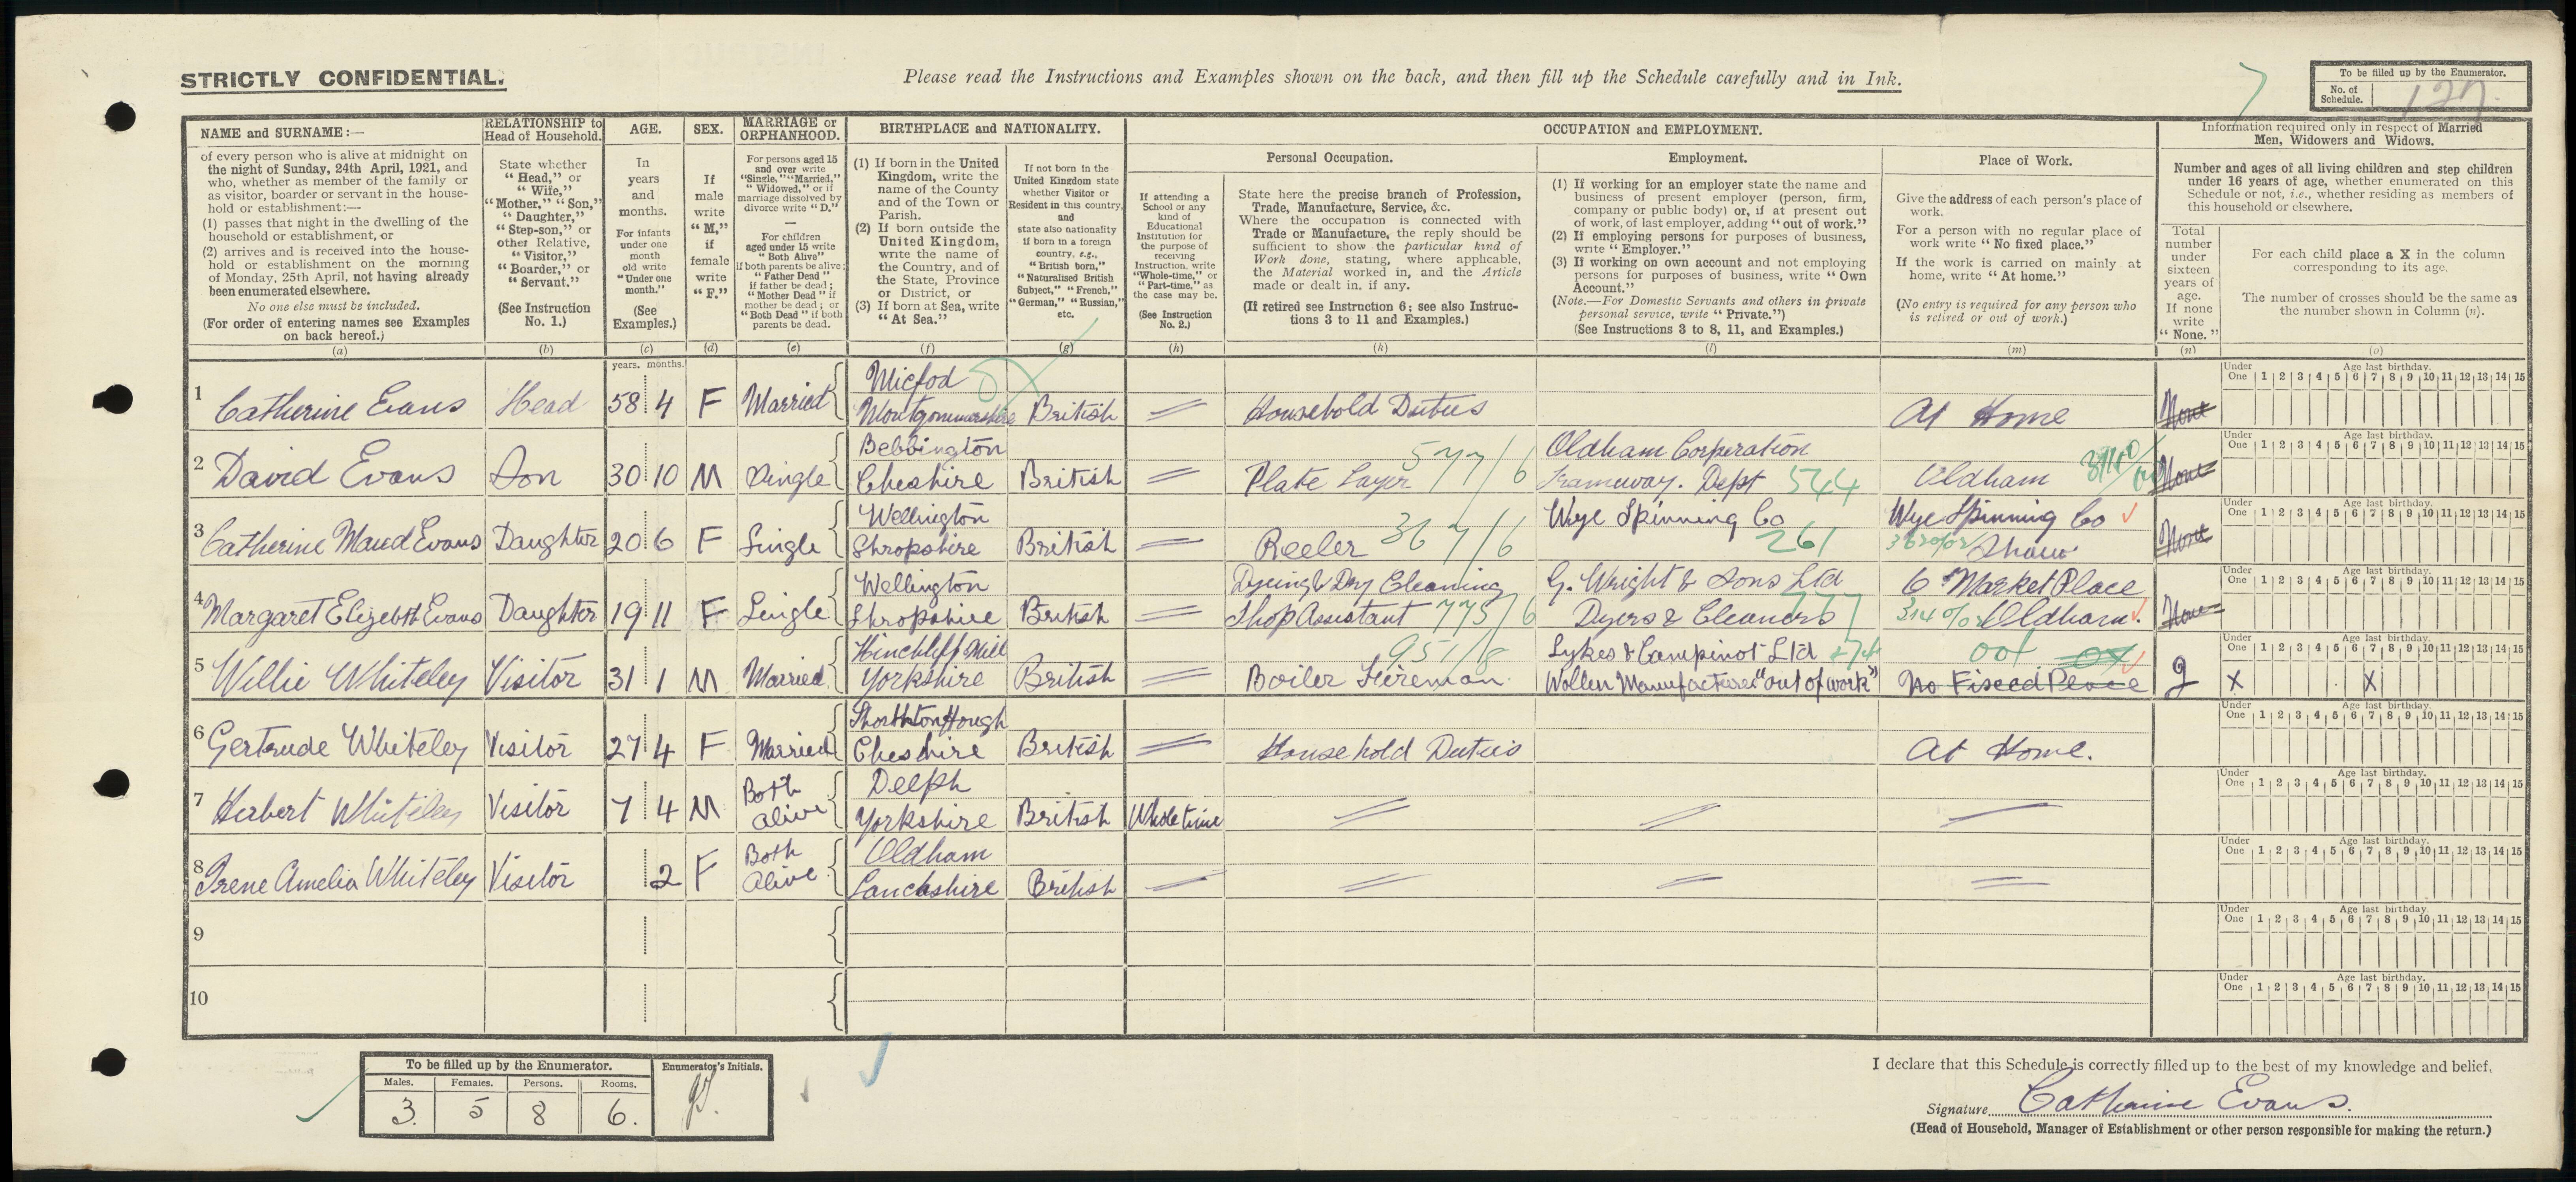 STRICTLY CONFIDENTIAL.
Please read the Instructions and Examples shown on the back, and then fill up the Schedule carefully and in Ink.
To be filled up by the Enumerator.
No. of Schedule. 127.
NAME and SURNAME:—
of every person who is alive at midnight on
the night of Sunday, 24th April, 1921, and
who, whether as member of the family or
as visitor, boarder or servant in the house-
hold or establishment:—
(1) passes that night in the dwelling of the
household or establishment, or
(2) arrives and is received into the house-
hold or establishment on the morning
of Monday, 25th April, not having already
been enumerated elsewhere.
No one else must be included.
(For order of entering names see Examples
on back hereof.)
(a)
RELATIONSHIP to
Head of Household.
State whether
"Head," or
"Wife,"
"Mother," "Son,"
"Daughter,"
"Step-son," or
other Relative,
"Visitor,"
"Boarder," or
"Servant."
(See Instruction
No. 1.)
(b)
AGE.
In
years
and
months.
For infants
under one
month
old write
"Under one
month."
(See
Examples.)
(c)
SEX.
If
male
write
"M,"
if
female
write
"F."
(d)
MARRIAGE or
ORPHANHOOD.
For persons aged 15
and over write
"Single," "Married,"
"Widowed," or if
marriage dissolved by
divorce write "D."
For children
aged under 15 write
"Both Alive"
if both parents be alive;
"Father Dead"
if father be dead;
"Mother Dead" if
mother be dead; or
"Both Dead" if both
parents be dead.
(e)
BIRTHPLACE and NATIONALITY.
(1) If born in the United
Kingdom, write the
name of the County
and of the Town or
Parish.
(2) If born outside the
United Kingdom,
write the name of
the Country, and of
the State, Province
or District, or
(3) If born at Sea, write
"At Sea."
(f)
If not born in the
United Kingdom state
whether Visitor or
Resident in this country,
and
state also nationality
if born in a foreign
country, e.g.,
"British born,"
"Naturalised British
Subject," "French,"
"German," "Russian,"
etc.
(g)
OCCUPATION and EMPLOYMENT.
If attending a
School or any
kind of
Educational
Institution for
the purpose of
receiving
Instruction, write
"Whole-time," or
"Part-time," as
the case may be.
(See Instruction
No. 2.)
(h)
Personal Occupation.
State here the precise branch of Profession,
Trade, Manufacture, Service, &c.
Where the occupation is connected with
Trade or Manufacture, the reply should be
sufficient to show the particular kind of
Work done, stating, where applicable,
the Material worked in, and the Article
made or dealt in, if any.
(If retired see Instruction 6; see also Instruc-
tions 3 to 11 and Examples.)
(k)
Employment.
(1) If working for an employer state the name and
business of present employer (person, firm,
company or public body) or, if at present out
of work, of last employer, adding "out of work."
(2) If employing persons for purposes of business,
write "Employer."
(3) If working on own account and not employing
persons for purposes of business, write "Own
Account."
(Note.—For Domestic Servants and others in private
personal service, write "Private.")
(See Instructions 3 to 8, 11, and Examples.)
(l)
Place of Work.
Give the address of each person's place of
work.
For a person with no regular place of
work write "No fixed place."
If the work is carried on mainly at
home, write "At home."
(No entry is required for any person who
is retired or out of work.)
(m)
Information required only in respect of Married
Men, Widowers and Widows.
Number and ages of all living children and step children
under 16 years of age, whether enumerated on this
Schedule or not, i.e., whether residing as members of
this household or elsewhere.
Total
number
under
sixteen
years of
age.
If none
write
"None."
(n)
For each child place a X in the column
corresponding to its age.
The number of crosses should be the same as
the number shown in Column (n).
(o)
years. months.
1 Catherine Evans Head 58 4 F Married Micfod Montgomeryshire British Household Duties At Home None
2 David Evans Son 30 10 M Single Bebbington Cheshire British Plate Layer 577/6 Oldham Corporation Tramway. Dept 544 Oldham None
3 Catherine Maud Evans Daughter 20 6 F Single Wellington Shropshire British Reeler 367/6 Wye Spinning Co 261 Wye Spinning Co Shaw None
4 Margaret Elizebth Evans Daughter 19 11 F Single Wellington Shropshire British Dyeing & Dry Cleaning Shop Assistant 775/6 G. Wright & Sons Ltd Dyers & Cleaners 777 6 Market Place Oldham. None
5 Willie Whiteley Visitor 31 1 M Married Hinchliff Mill Yorkshire British Boiler Fireman 951/8 Sykes & Ltd Wollen Manufacturers "out of work" No Fixed Place 2 X X
6 Gertrude Whiteley Visitor 27 4 F Married Thorthton Hough Cheshire British Household Duties At Home.
7 Herbert Whiteley Visitor 7 4 M Both Alive Delph Yorkshire British Whole time
8 Irene Amelia Whiteley Visitor 2 F Both Alive Oldham Lancashire British
9
10
Under One 1 2 3 4 5 6 7 8 9 10 11 12 13 14 15
Age last birthday.
To be filled up by the Enumerator.
Males. Females. Persons. Rooms.
3. 5 8 6.
Enumerator's Initials.
I declare that this Schedule is correctly filled up to the best of my knowledge and belief.
Signature Catherine Evans.
(Head of Household, Manager of Establishment or other person responsible for making the return.)